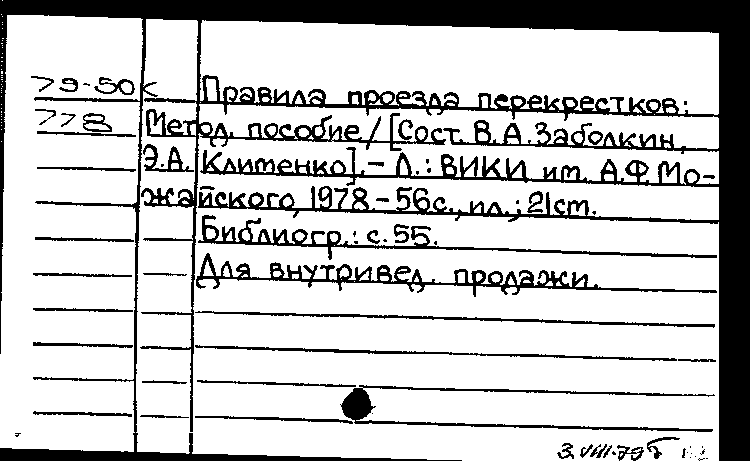 79-50к Правила проезда перекрестков:
778 Метод. пособие / [Сост. В.А.Заболкин,
Э.А. Клименко]. – Л.: ВИКИ им. А.Ф.Мо-
жайского, 1978. – 56с., ил.; 21ст.
Библиогр.: с. 55.
Для внутривед. продажи.
3.VIII.79